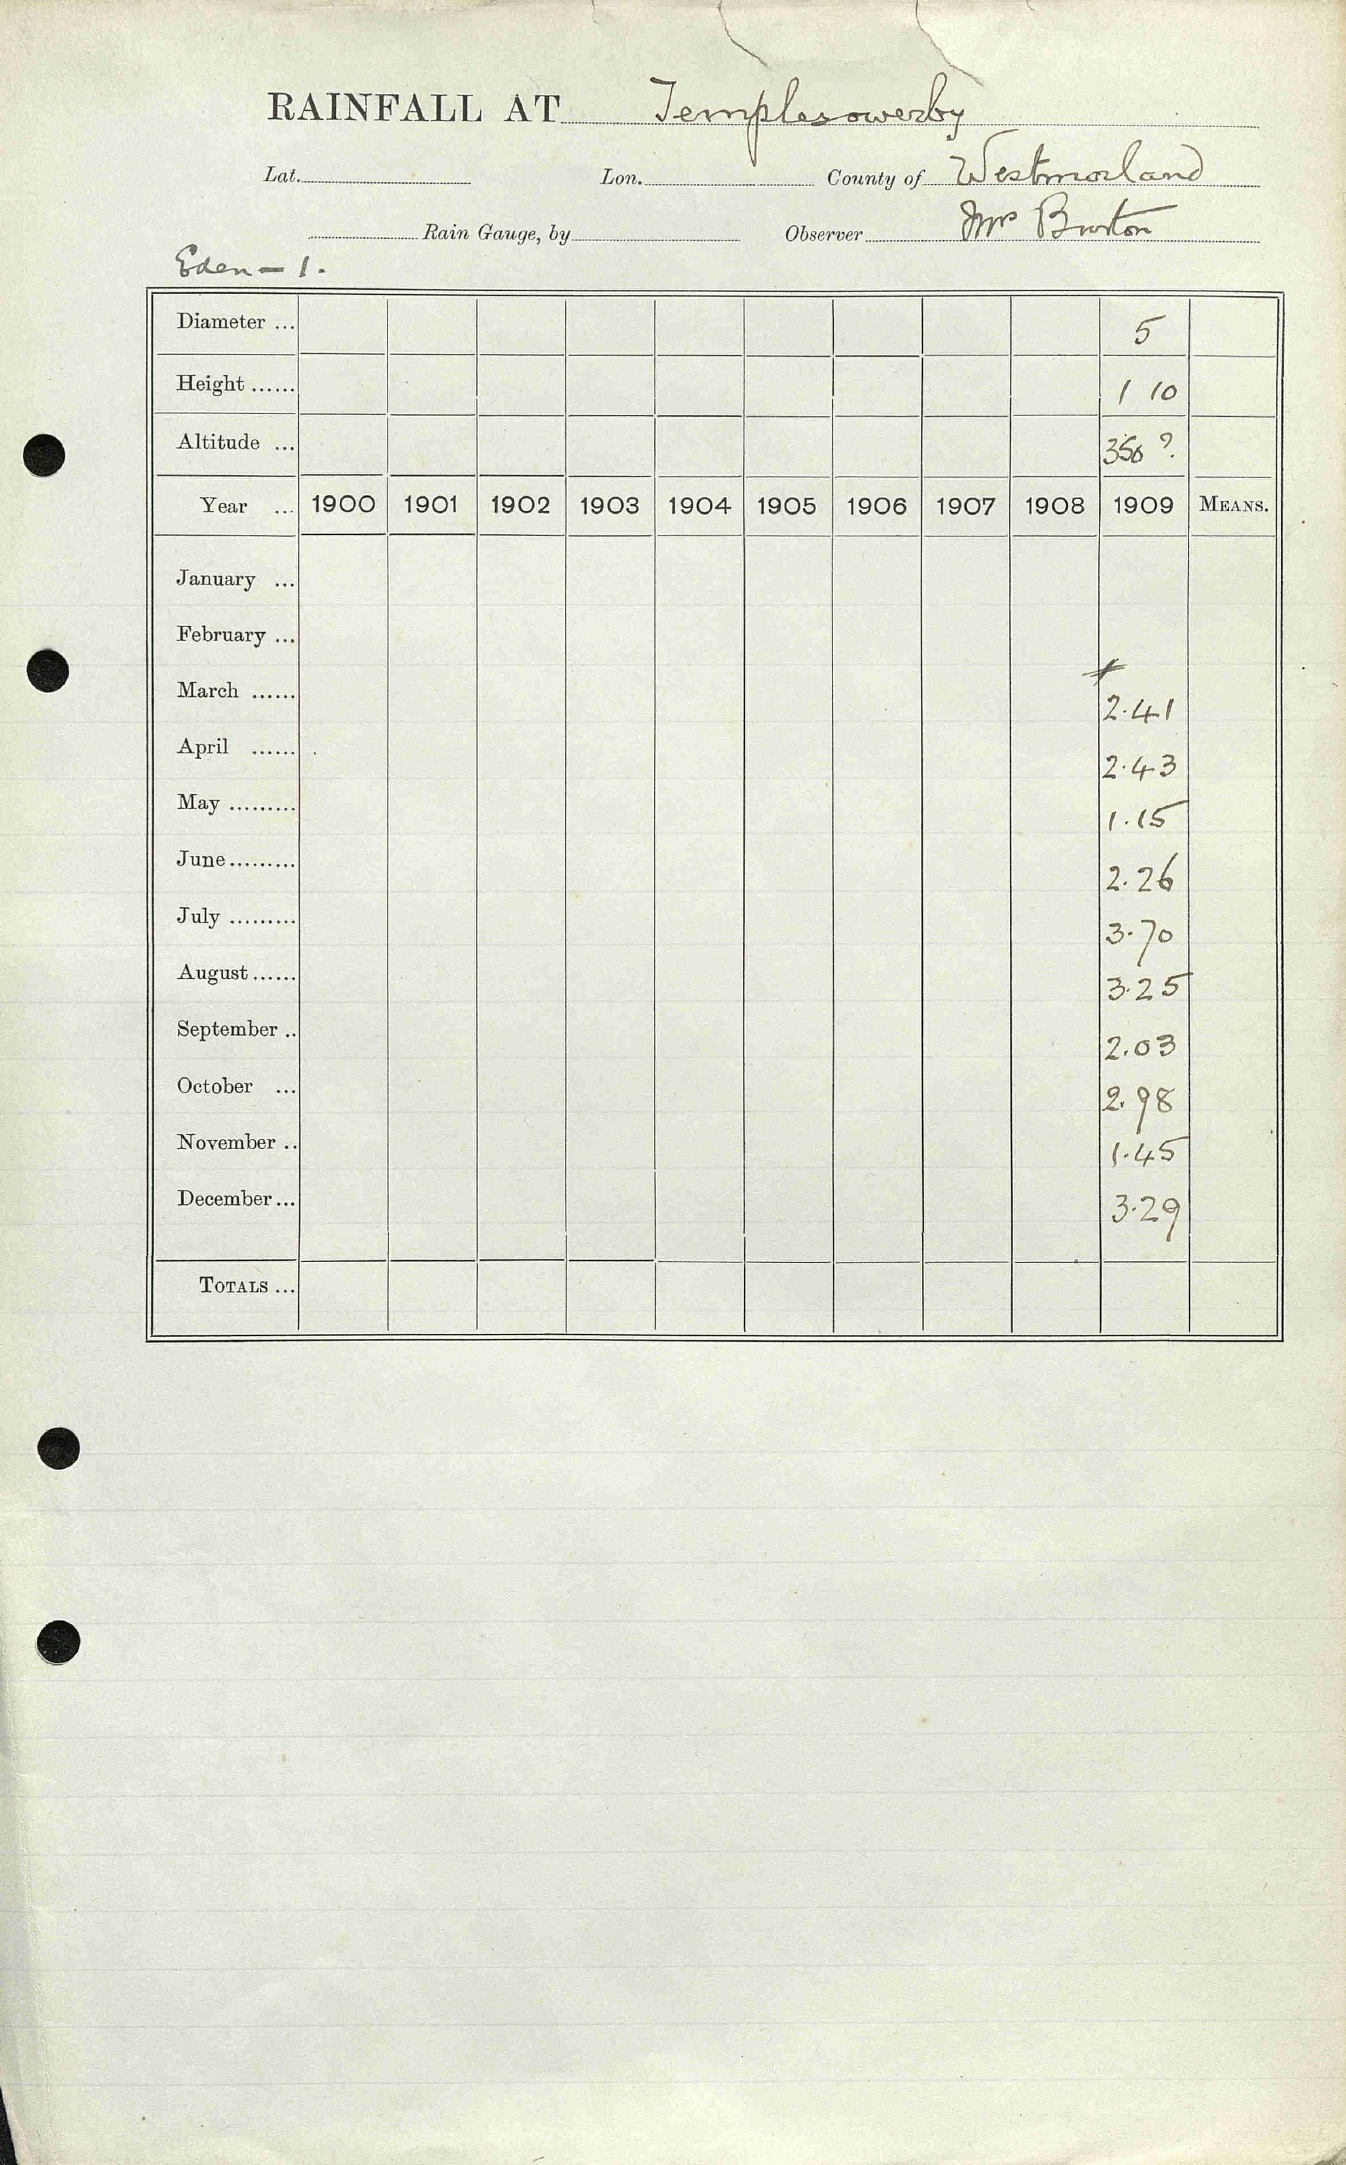 RAINFALL AT Templesowerby
Lat. Lon. County of Westmorland
Rain Gauge, by Observer Mrs Burton
Eden - 1.
Diameter ... 5
Height ...... 1 10
Altitude ... 350 ?
Year ... 1900 1901 1902 1903 1904 1905 1906 1907 1908 1909 MEANS.
January ...
February ...
March ...... 2.41
April ...... 2.43
May ......... 1.15
June ......... 2.26
July ......... 3.70
August ...... 3.25
September .. 2.03
October ... 2.98
November .. 1.45
December ... 3.29
TOTALS ...